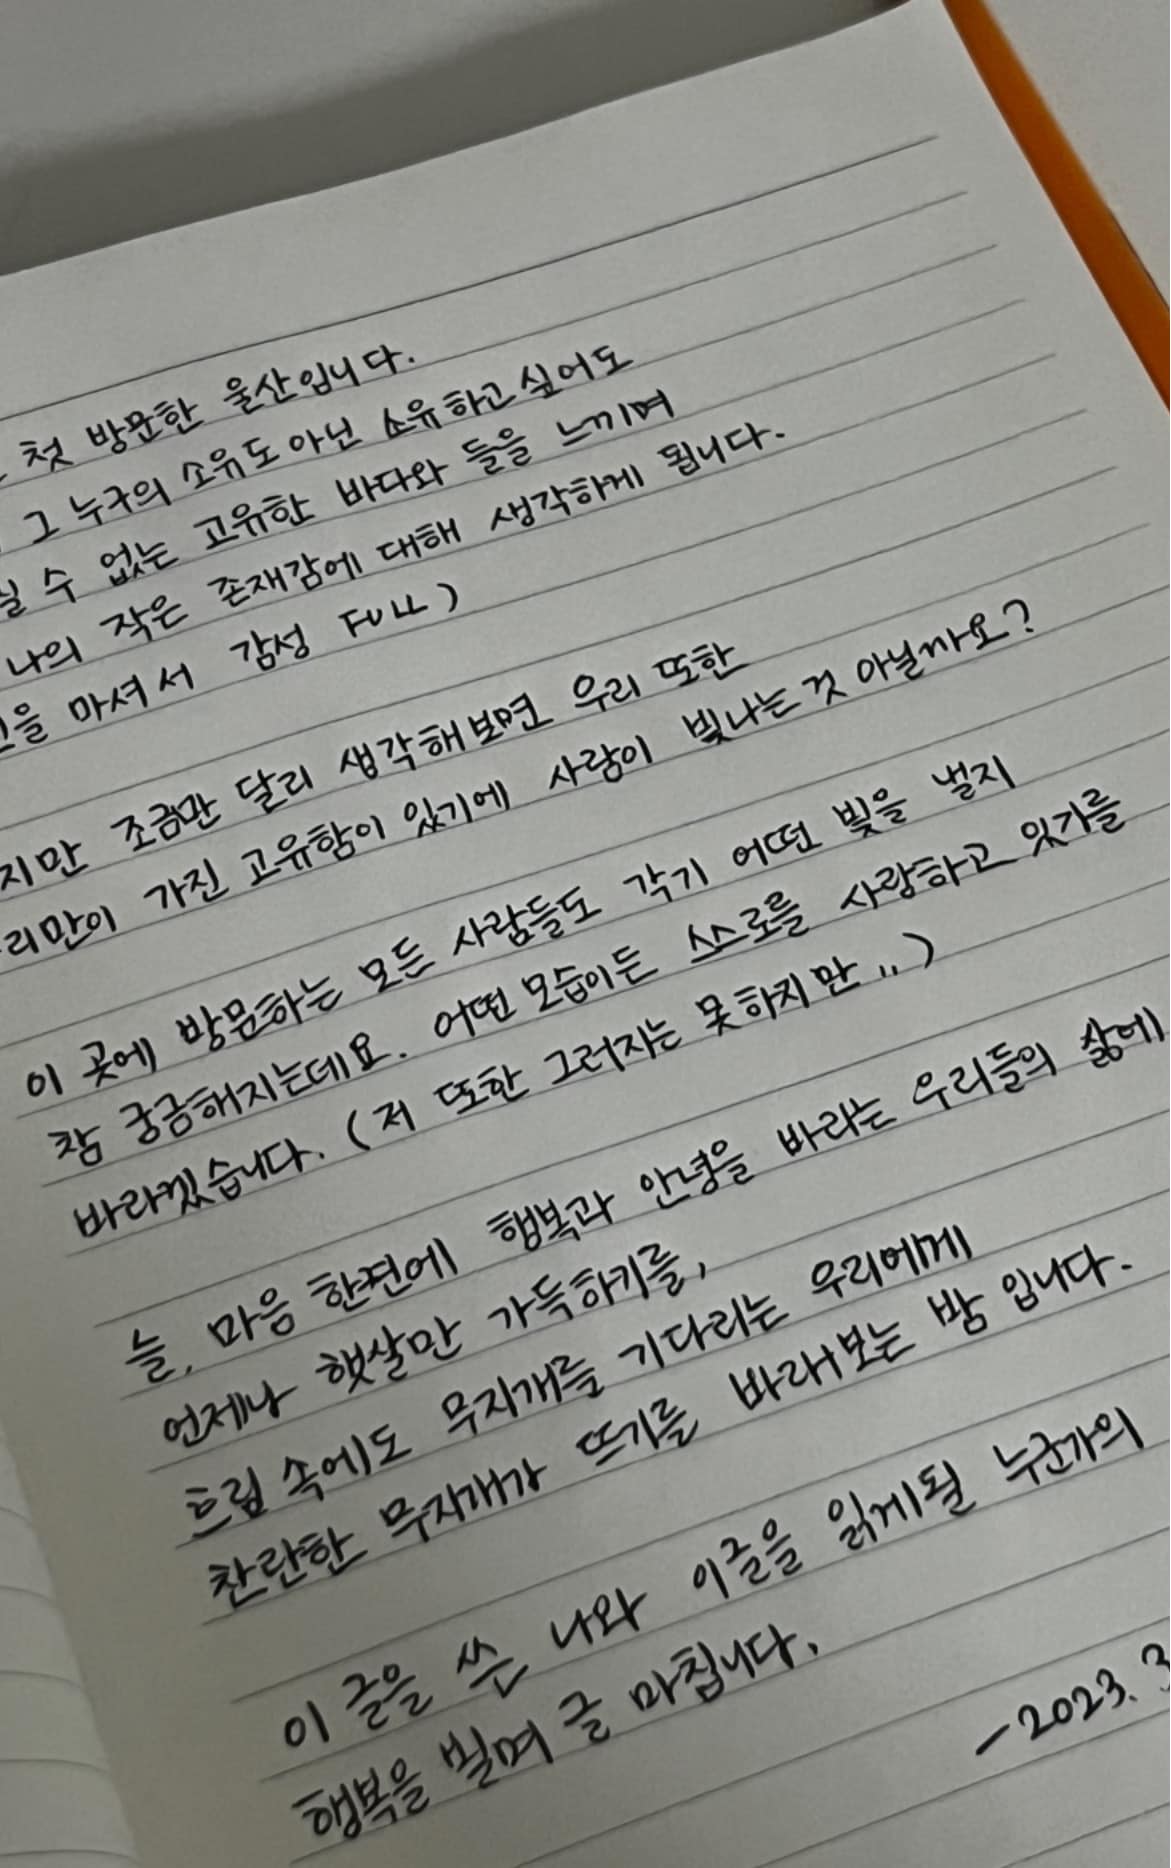 첫 방문한 울산입니다.
그 누구의 소유도 아닌 소유하고 싶어도
수 없는 고유한 바다와 들을 느끼며
나의 작은 존재감에 대해 생각하게 됩니다.
을 마셔서 감성 FULL)
지만 조금만 달리 생각해보면 우리 또한
리만이 가진 고유함이 있기에 사랑이 빛나는 것 아닐까요?
이 곳에 방문하는 모든 사람들도 각기 어떤 빛을 낼지
참 궁금해지는데요. 어떤 모습이든 스스로를 사랑하고 있기를
바라겠습니다. (저 또한 그러지는 못하지만..)
늘, 마음 한편에 행복과 안녕을 바라는 우리들의 삶에
언제나 햇살만 가득하기를,
흐림 속에도 무지개를 기다리는 우리에게
찬란한 무지개가 뜨기를 바라보는 밤 입니다.
이 글을 쓴 나와 이글을 읽게될 누군가의
행복을 빌며 글 마칩니다.
-2023. 3